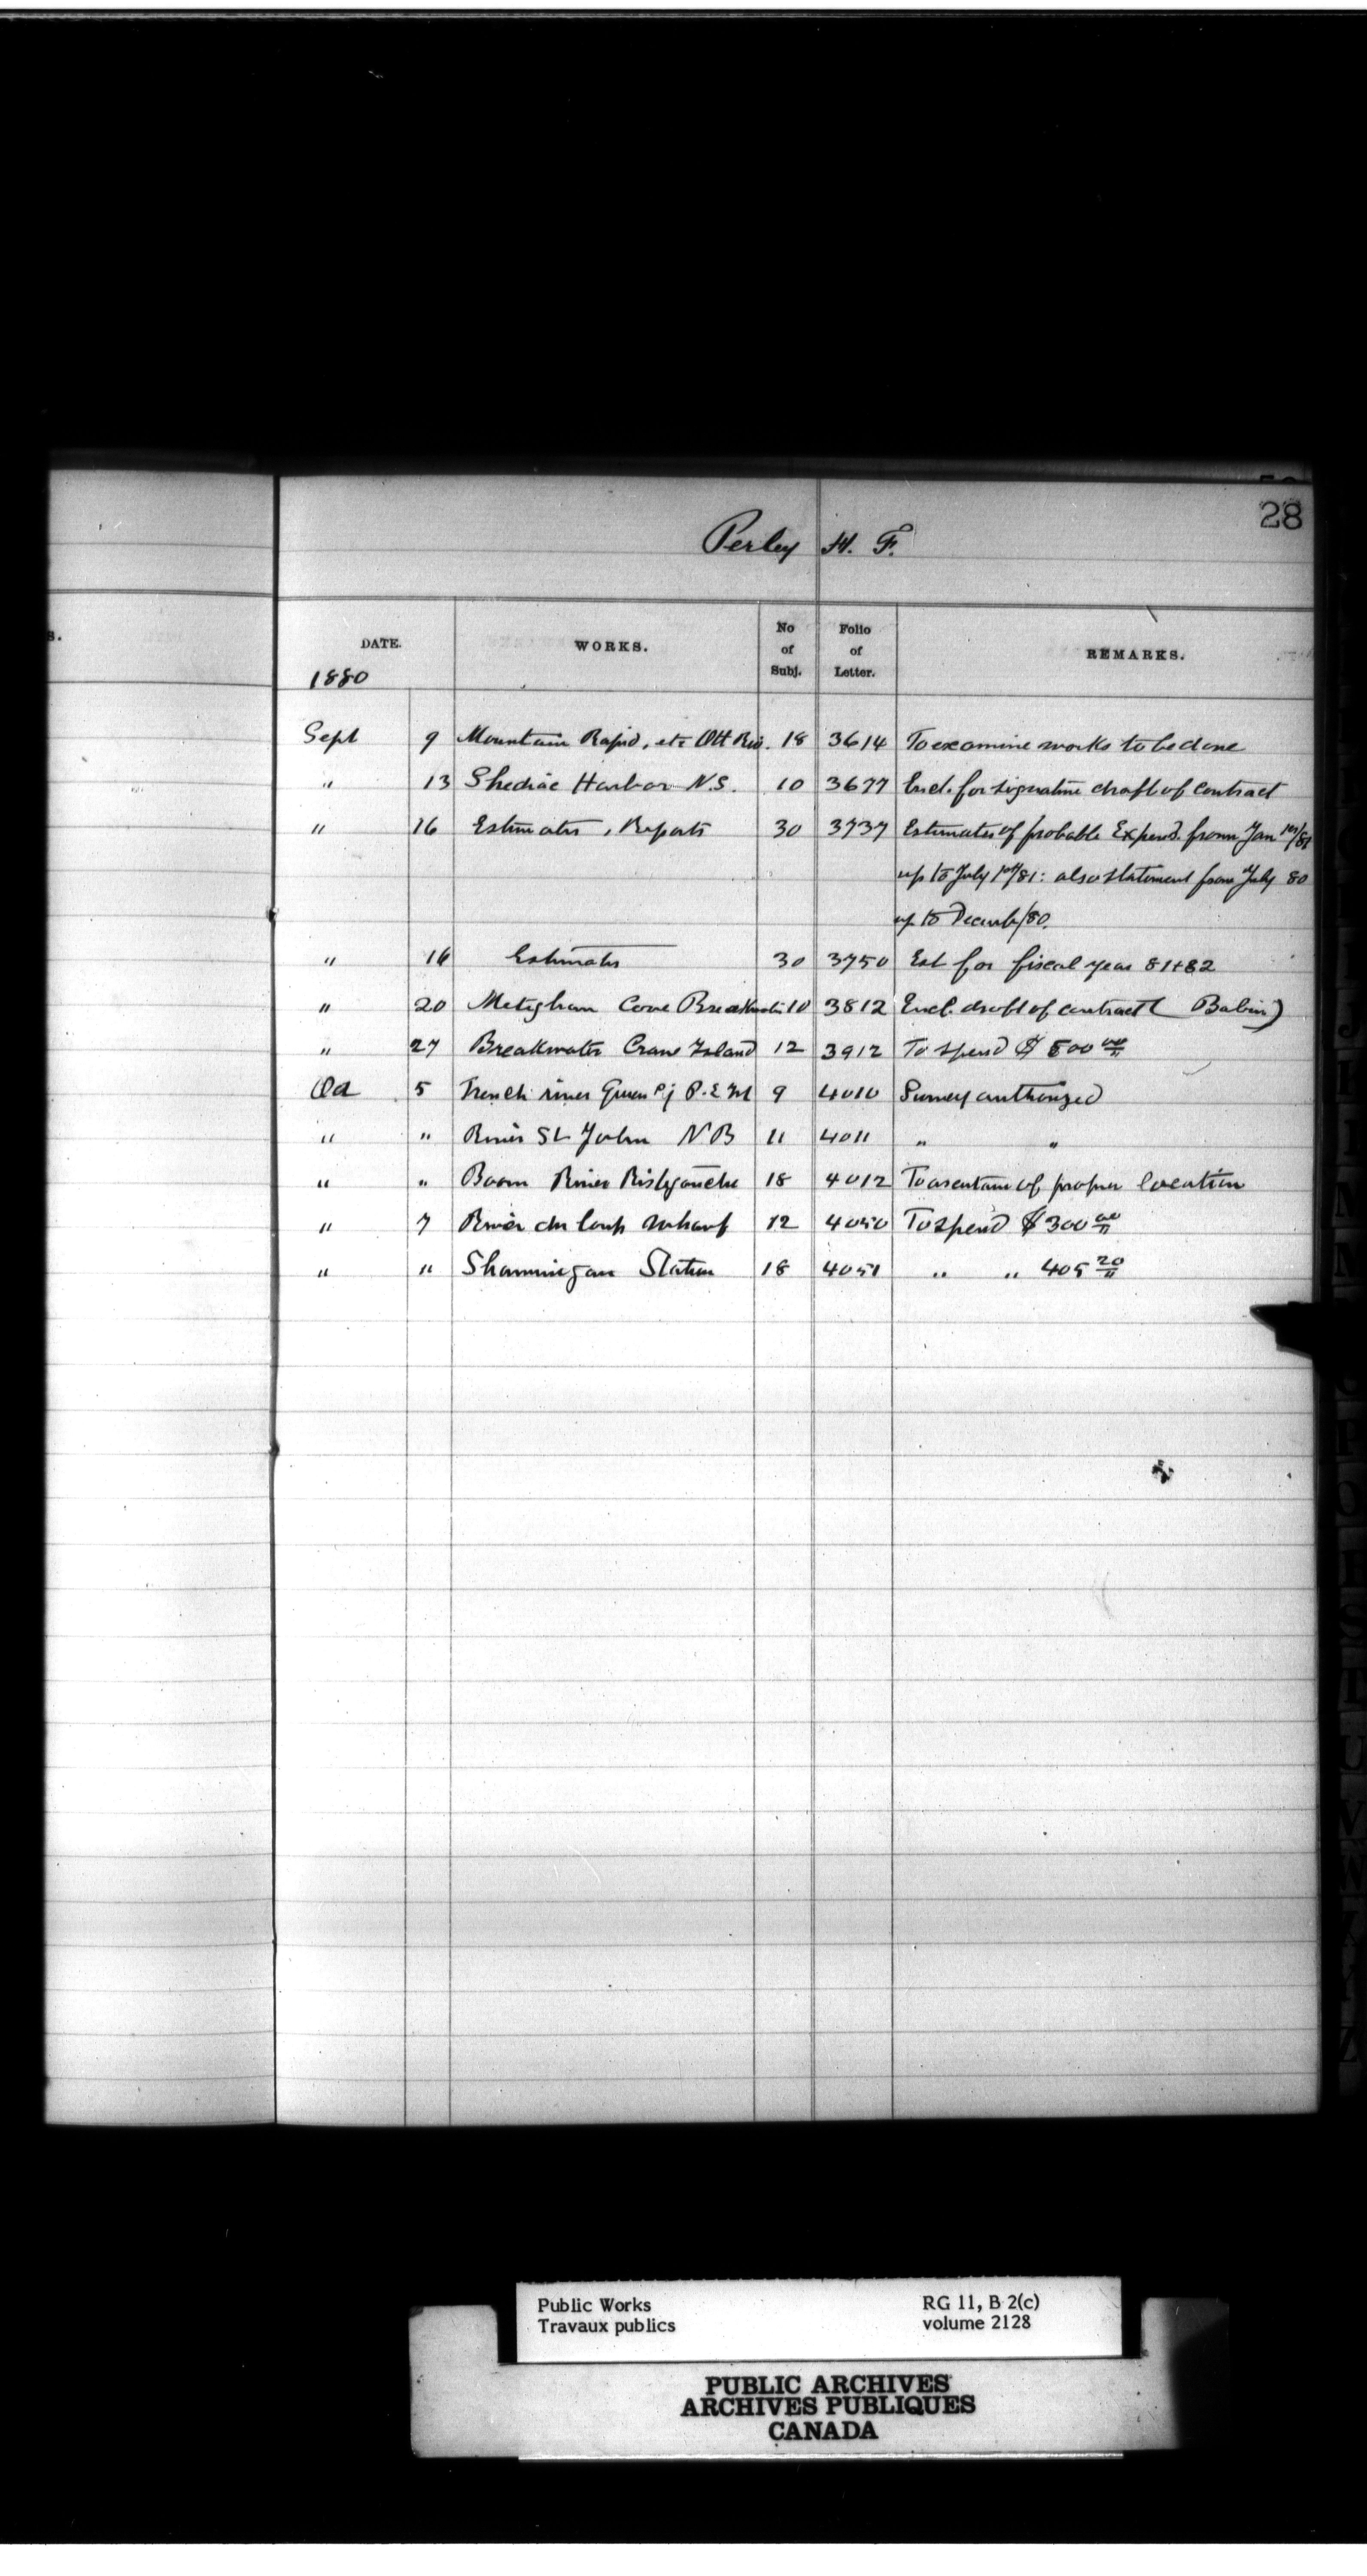 28
Perley H. F.
S.
DATE. WORKS. No of Subj. Folio of Letter. REMARKS.
1880
Sept 9 Mountain Rapid, etc Ott Riv. 18 3614 To examine works to be done
" 13 Shediac Harbor N.S. 10 3677 Encl. for signature draft of contract
" 16 Estimates, Reports 30 3737 Estimates of probable Expend. from Jan 1st/81
up to July 1st/81: also statement from July 80
up to Decemb/80.
" 16 Estimates 30 3750 Est for fiscal year 81+82
" 20 Meteghan Cove Breakwater 10 3812 Encl. draft of contract ( Babin)
" 27 Breakwater Crane Island 12 3912 To spend $ 500 00/"
Oct 5 French river P. E Isl 9 4010 Survey authorized
" " River St John N B 11 4011 " "
" " Boom River Ristigouche 18 4012 To ascertain of proper location
" 7 River du loup wharf 12 4050 To spend $ 300 00/"
" " Shawinigan Station 18 4051 " " 405 20/"
Public Works RG 11, B 2(c)
Travaux publics volume 2128
PUBLIC ARCHIVES
ARCHIVES PUBLIQUES
CANADA